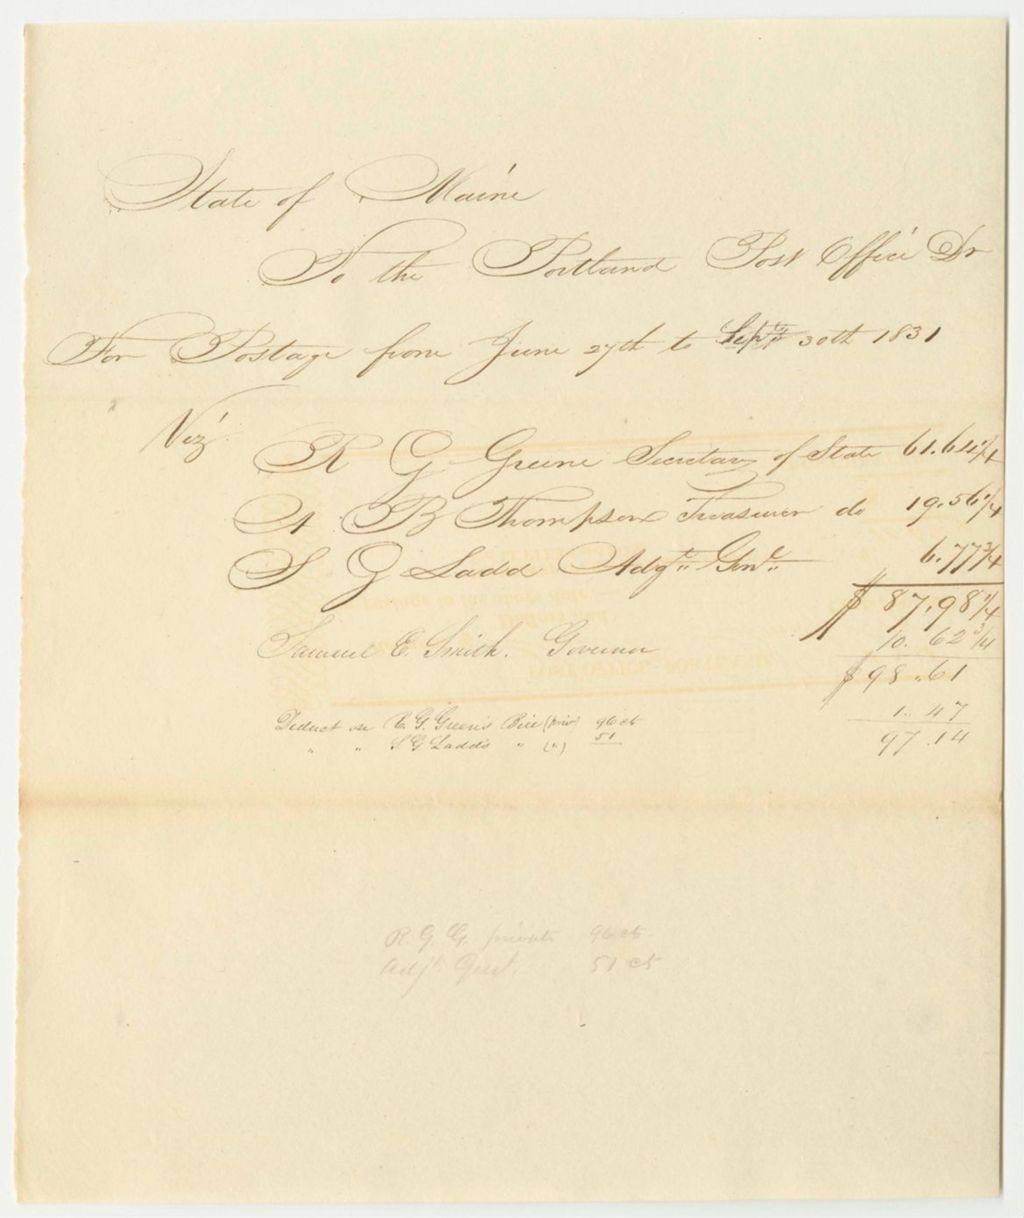 State of Maine
To the Portland Post Office Dr
For Postage from June 27th to Sept 30th 1831
Viz
R G Greene Secretary of State 61.64 1/4
A B Thompson Treasurer do 19.56 1/4
S G Ladd Adgt Genl 6.77 3/4
$ 87.98 1/4
Samuel E. Smith. Governor 10.62 3/4
$ 98.61
Deduct on R. G. Green's Bill (priv) 96 ct
" " S G Ladd's " (") 51
1.47
97.14
R. G. G. private 96 ct
Adjt Genl. 51 ct